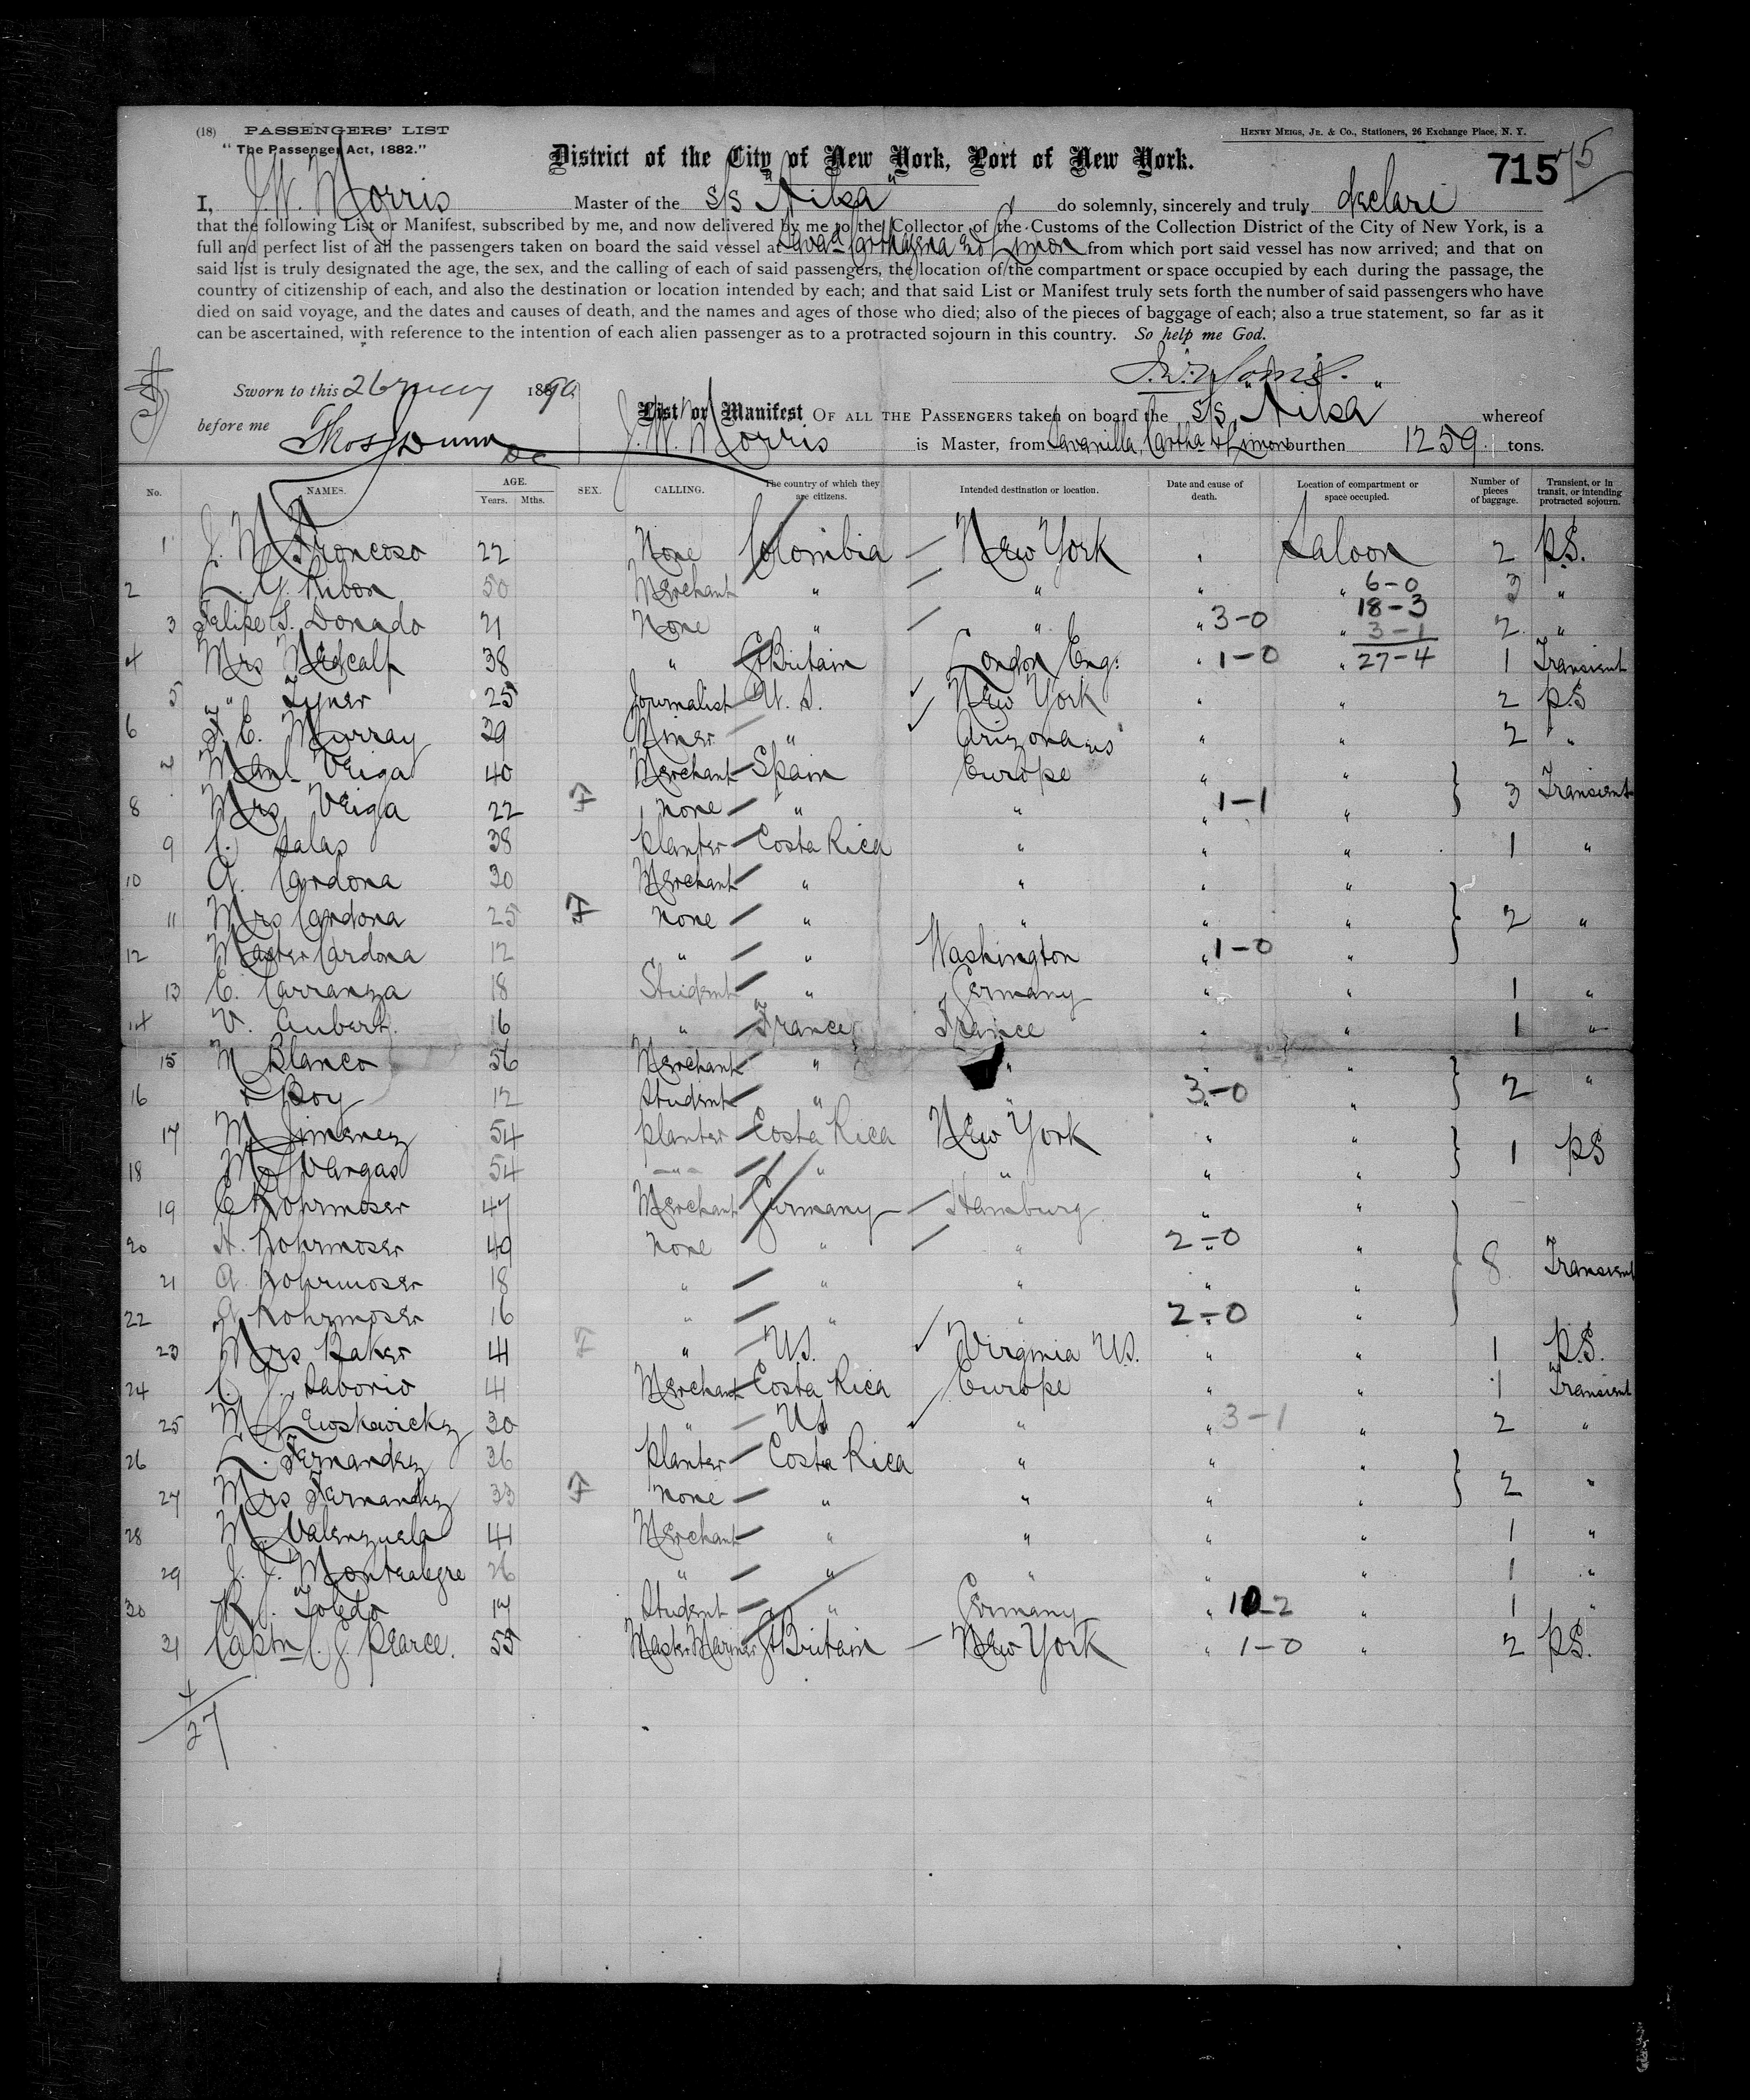 (18) PASSENGERS' LIST
HENRY MEIGS, JR. & CO., Stationers, 26 Exchange Place, N. Y.
"The Passenger Act, 1882."
District of the City of New York, Port of New York.
715 75
I, J. W. Morris Master of the S/S "Ailsa" do solemnly, sincerely and truly declare
that the following List or Manifest, subscribed by me, and now delivered by me to the Collector of the Customs of the Collection District of the City of New York, is a
full and perfect list of all the passengers taken on board the said vessel at Sava Carthagena and Limon from which port said vessel has now arrived; and that on
said list is truly designated the age, the sex, and the calling of each of said passengers, the location of the compartment or space occupied by each during the passage, the
country of citizenship of each, and also the destination or location intended by each; and that said List or Manifest truly sets forth the number of said passengers who have
died on said voyage, and the dates and causes of death, and the names and ages of those who died; also of the pieces of baggage of each; also a true statement, so far as it
can be ascertained, with reference to the intention of each alien passenger as to a protracted sojourn in this country. So help me God.
J. W. Morris.
Sworn to this 26 May 1890
before me Thos Dunn DC
List or Manifest OF ALL THE PASSENGERS taken on board the S/S "Ailsa" whereof
J. W. Morris is Master, from Savanilla, Cartha & Limon burthen 1259 tons.
No. NAMES. AGE. Years. Mths. SEX. CALLING. The country of which they are citizens. Intended destination or location. Date and cause of death. Location of compartment or space occupied. Number of pieces of baggage. Transient, or in transit, or intending protracted sojourn.
1 J. M. Troncoso 22 None Colombia — New York " Saloon 2 P.S.
2 L. G. Ribon 50 Merchant " " " " 6-0 3 "
18-3
3 Felipe S. Donado 21 None " " " 3-0 " 3-1 2 "
4 Mrs Medcalf 38 " Gt Britain London Eng: " 1-0 " 27-4 1 Transient
5 " Tyner 25 Journalist U. S. ✓ New York " " 2 P.S
6 J. E. Murray 39 Miner " ✓ Arizona US " " 2 "
7 Manl Veiga 40 Merchant Spain Europe " " 3 Transient
8 Mrs Veiga 22 F none " " " 1-1 "
9 C. Salas 38 planter Costa Rica " " " 1 "
10 A. Cardona 30 Merchant " " " "
11 Mrs Cardona 25 F none " " " " 2 "
12 Master Cardona 12 " " Washington " 1-0 "
13 E. Carranza 18 Student " Germany " " 1 "
14 V. Aubert 16 " France France " " 1 "
15 M Blanco 56 Merchant " " " " 2 "
16 & Boy 12 Student " " 3-0 "
17 M Jimenez 54 planter Costa Rica New York " " 1 PS
18 M Vargas 54 " " " " "
19 C Rohrmoser 47 Merchant Germany — Hamburg " "
20 H. Rohrmoser 49 none " " 2-0 " 8 Transient
21 A. Rohrmoser 18 " " " " "
22 A Rohrmoser 16 " " " 2-0 "
23 Mrs Baker 41 F " US. ✓ Virginia US. " " 1 P.S.
24 C. J. Saborio 41 Merchant Costa Rica Europe " " 1 Transient
25 M Lewskowickz 30 " US ✓ " " 3-1 " 2 "
26 L. Fernandez 36 planter Costa Rica " " " 2 "
27 Mrs Fernandez 33 F none " " " "
28 M Valenzuela 41 Merchant " " " " 1 "
29 J. J. Montealegre 26 " " " " " 1 "
30 R J. Toledo 17 Student " Germany " 10-2 " 1 "
31 Captn C. J. Pearce. 55 Master Mariner Gt Britain — New York " 1-0 " 2 P.S.
4
27